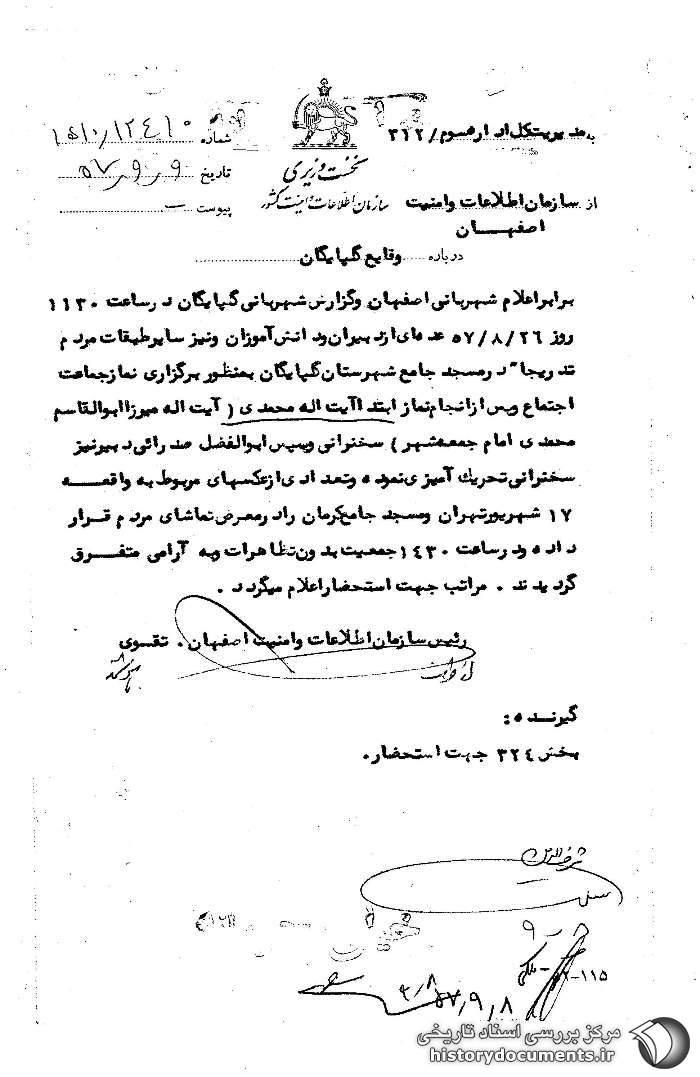 به مدیریت کل اداره سوم / ۳۱۲
شماره ۱۵۱۰/۱۲۴۱۰
تاریخ ۵۷/۹/۹
پیوست ـ
نخست وزیری
سازمان اطلاعات و امنیت کشور
از سازمان اطلاعات و امنیت
اصفهان
درباره وقایع گلپایگان
برابر اعلام شهربانی اصفهان و گزارش شهربانی گلپایگان در ساعت ۱۱۳۰
روز ۵۷/۸/۲۶ عده‌ای از دبیران و دانش‌آموزان و نیز سایر طبقات مردم
تدریجا" در مسجد جامع شهرستان گلپایگان بمنظور برگزاری نماز جماعت
اجتماع و پس از انجام نماز ابتدا آیت اله محمدی ( آیت اله میرزا ابوالقاسم
محمدی امام جمعه شهر ) سخنرانی و سپس ابوالفضل صدرائی دبیر نیز
سخنرانی تحریک آمیزی نموده و تعدادی از عکسهای مربوط به واقعه
۱۷ شهریور تهران و مسجد جامع کرمان را در معرض تماشای مردم قرار
داده و در ساعت ۱۴۳۰ جمعیت بدون تظاهرات و به آرامی متفرق
گردیدند . مراتب جهت استحضار اعلام میگردد .
رئیس سازمان اطلاعات و امنیت اصفهان . تقوی
گیرنده :
بخش ۳۲۴ جهت استحضار .
۱۱۵-
۵۷/۹/۸
مرکز بررسی اسناد تاریخی
historydocuments.ir